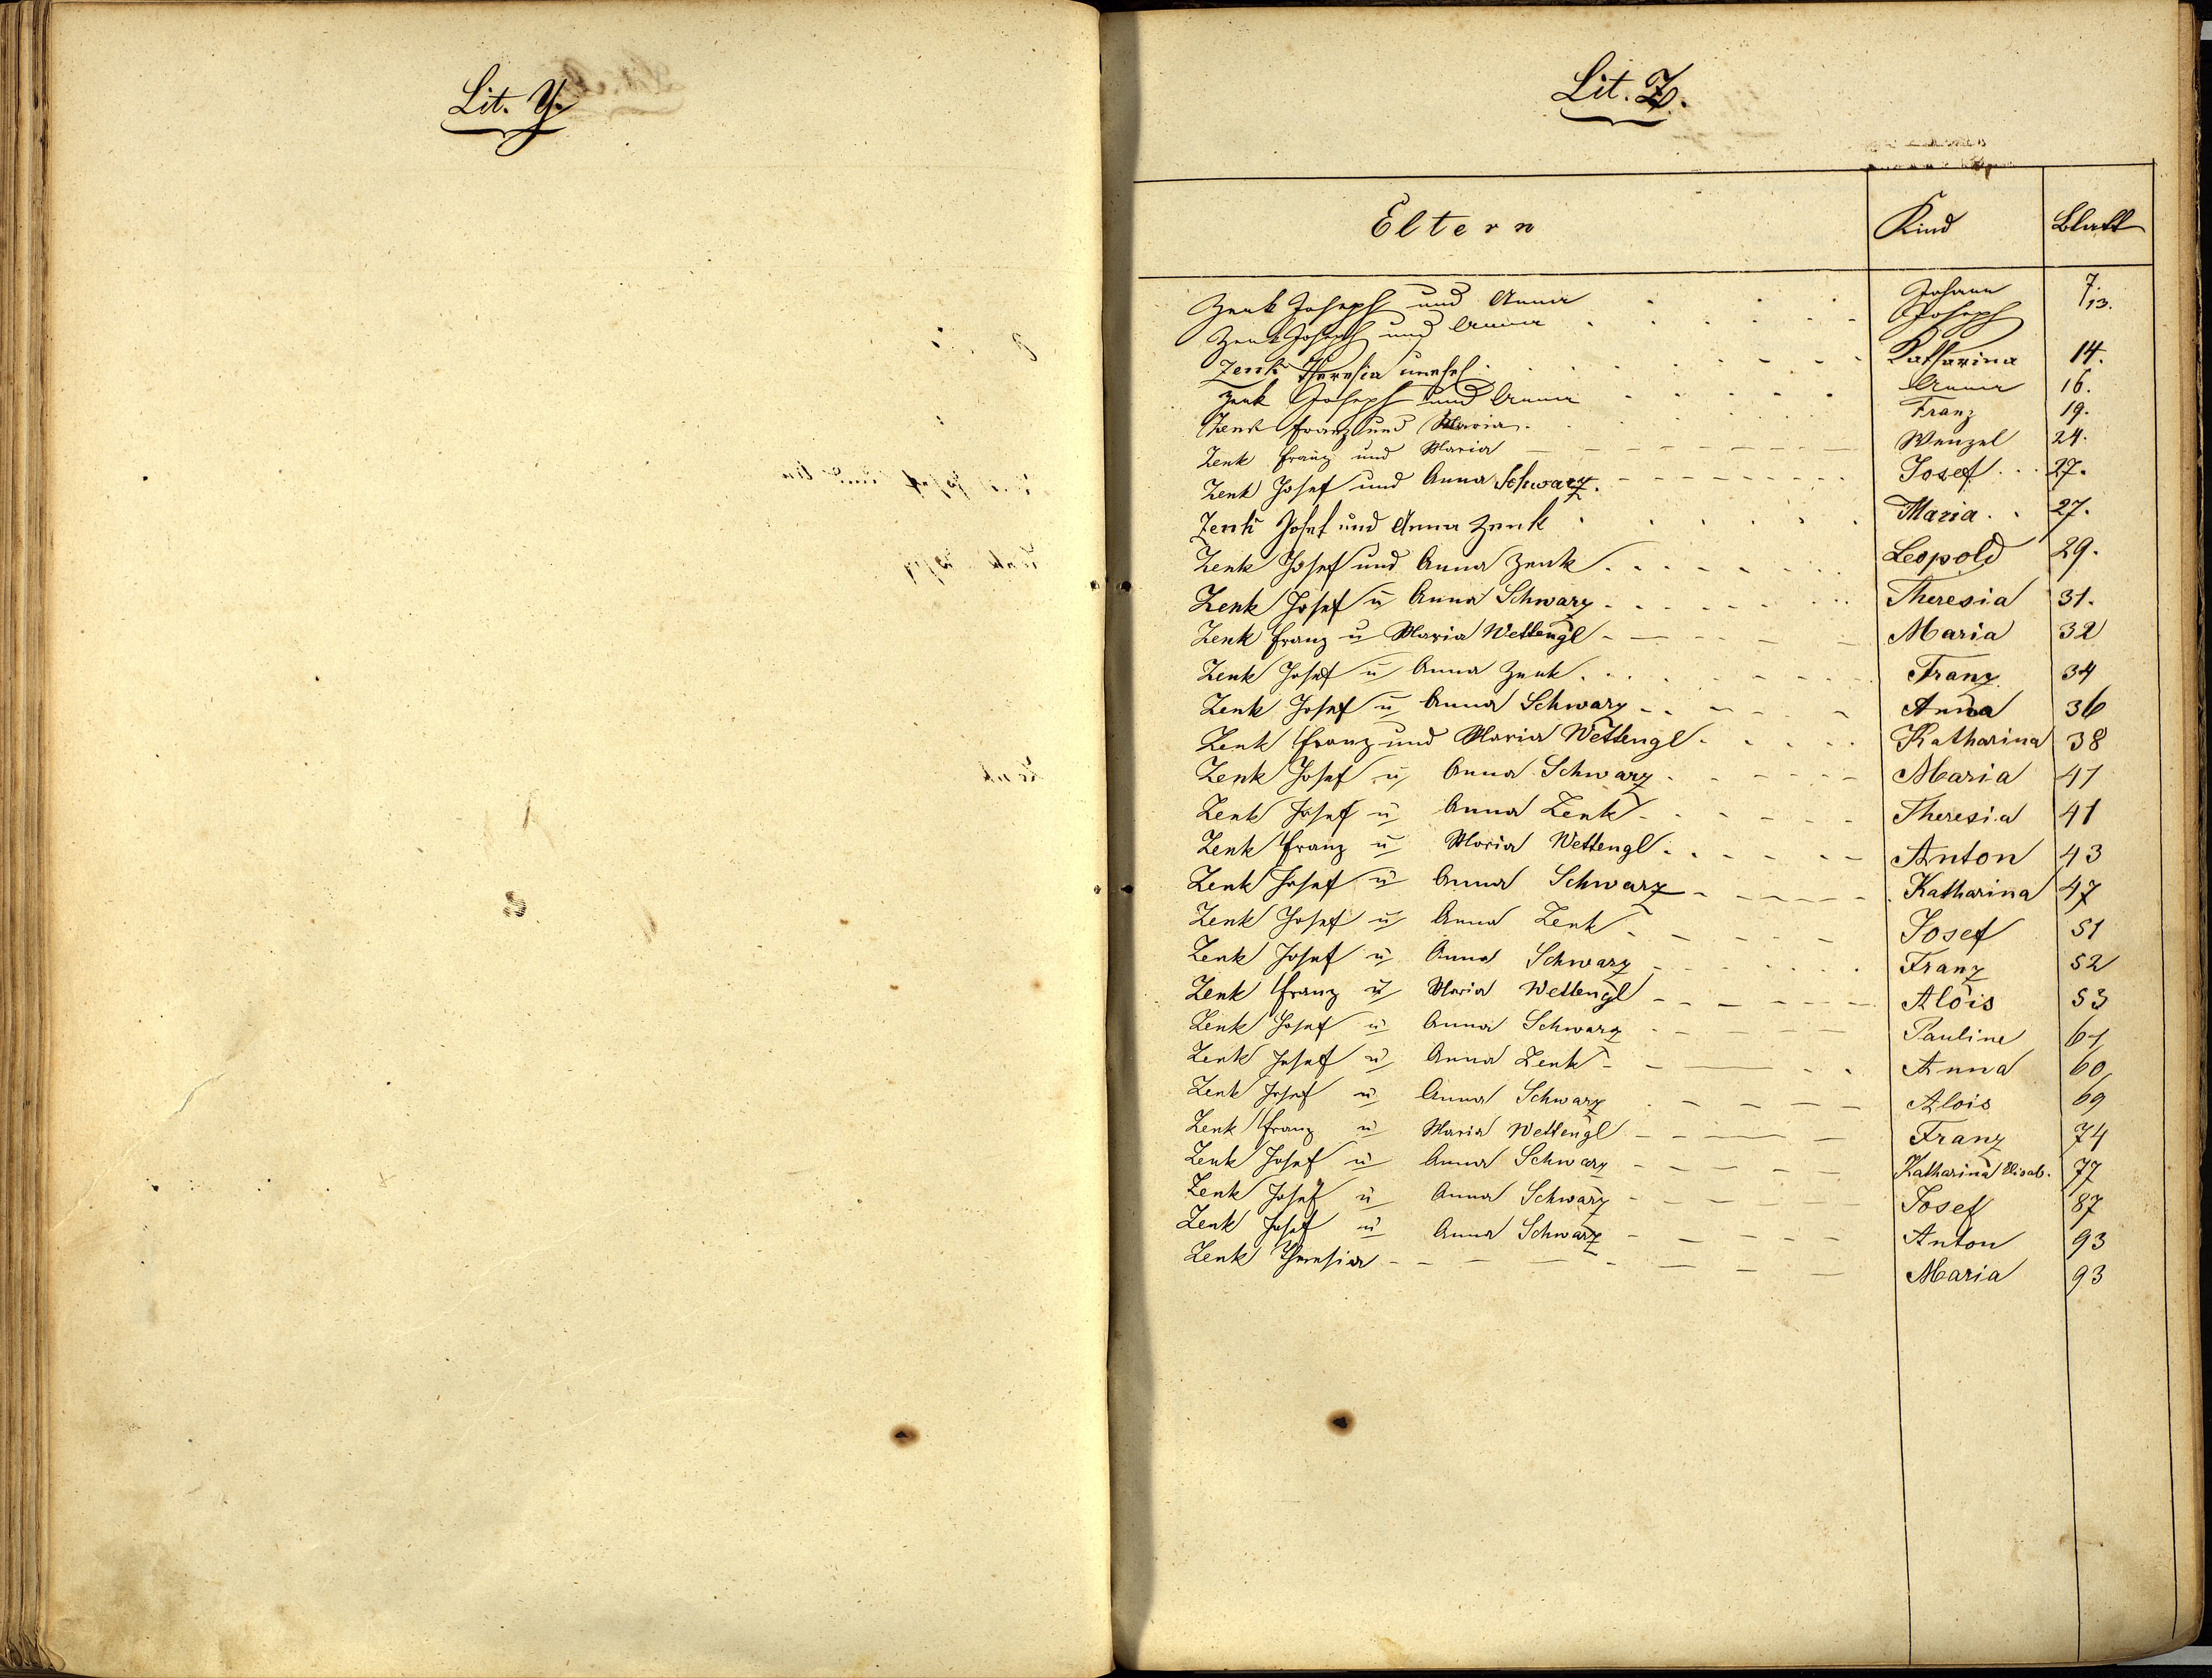 Lit. Y.
Lit. Z.
Eltern Kind Blatt
Zenk Joseph und Anna Johann 7.
Zenk Joseph und Anna Joseph 13.
Zenk Theresia unehel. Katharina 14.
Zenk Joseph und Anna Anna 16.
Zenk Franz und Maria. Franz 19.
Zenk Franz und Maria Wenzel 24.
Zenk Josef und Anna Schwarz. Josef 27.
Zenk Josef und Anna Zenk Maria 27.
Zenk Josef und Anna Zenk Leopold 29.
Zenk Josef u Anna Schwarz Theresia 31.
Zenk Franz u Maria Wettengl Maria 32
Zenk Josef u Anna Zenk Franz 34
Zenk Josef u Anna Schwarz Anna 36
Zenk Franz und Maria Wettengl Katharina 38
Zenk Josef u Anna Schwarz Maria 41
Zenk Josef u Anna Zenk Theresia 41
Zenk Franz u Maria Wettengl Anton 43
Zenk Josef u Anna Schwarz Katharina 47
Zenk Josef u Anna Zenk Josef 51
Zenk Josef u Anna Schwarz Franz 52
Zenk Franz u Maria Wettengl Alois 53
Zenk Josef u Anna Schwarz Pauline 61
Zenk Josef u Anna Zenk Anna 60
Zenk Josef u Anna Schwarz Alois 69
Zenk Franz u Maria Wettengl Franz 74
Zenk Josef u Anna Schwarz Katharina Elisab. 77
Zenk Josef u Anna Schwarz Josef 87
Zenk Josef u Anna Schwarz Anton 93
Zenk Theresia Maria 93